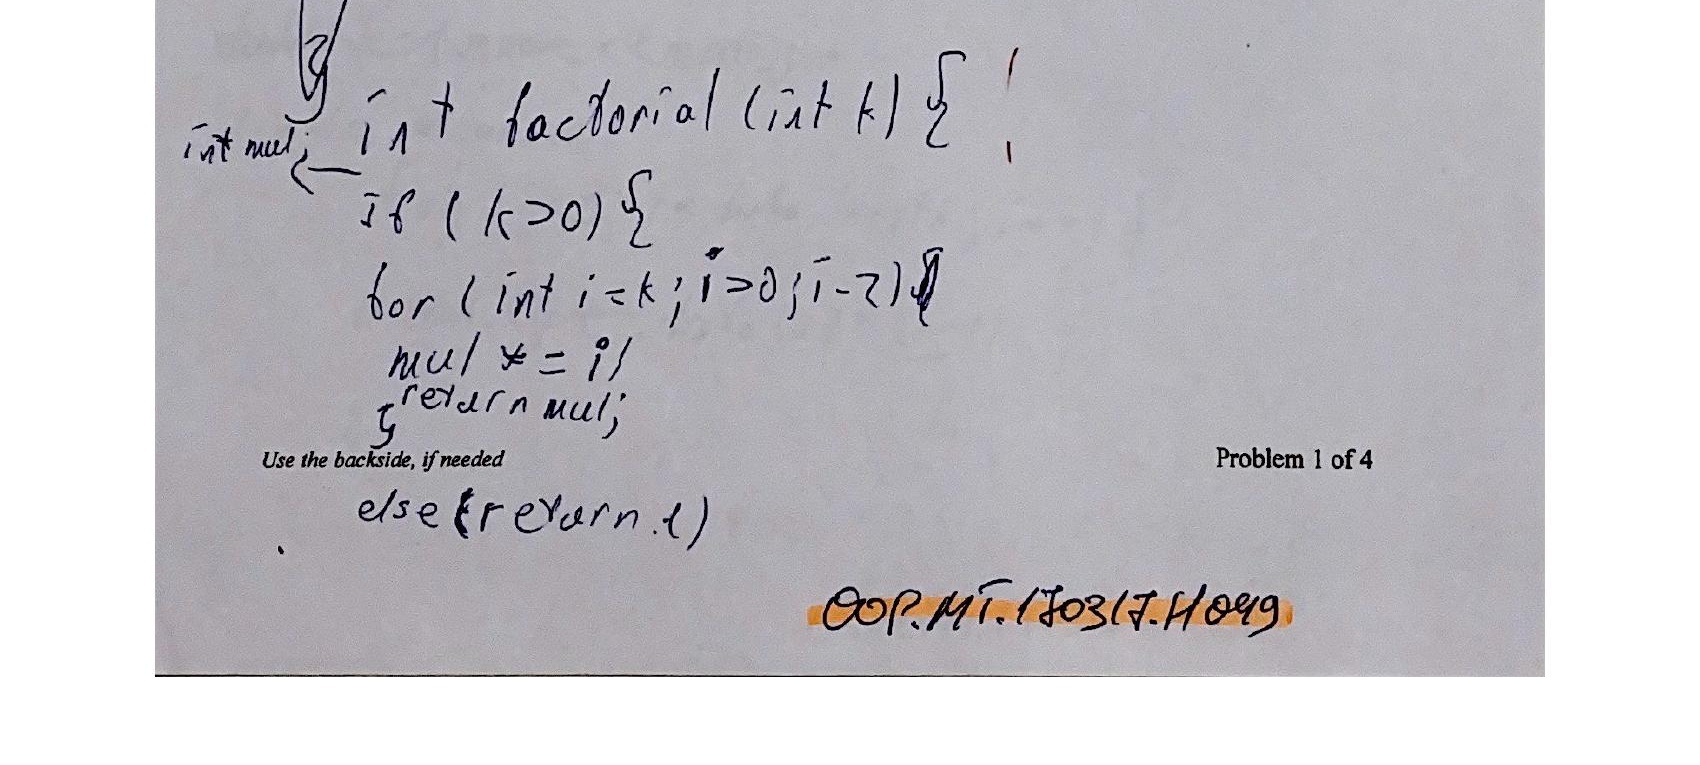 }
int factorial (int k) {
int mul;
if (k>0) {
for (int i=k; i>0; i-2)
mul *= i;
return mul;
}
Use the backside, if needed
Problem 1 of 4
else {return 1)
OOP.MT.170317.H049